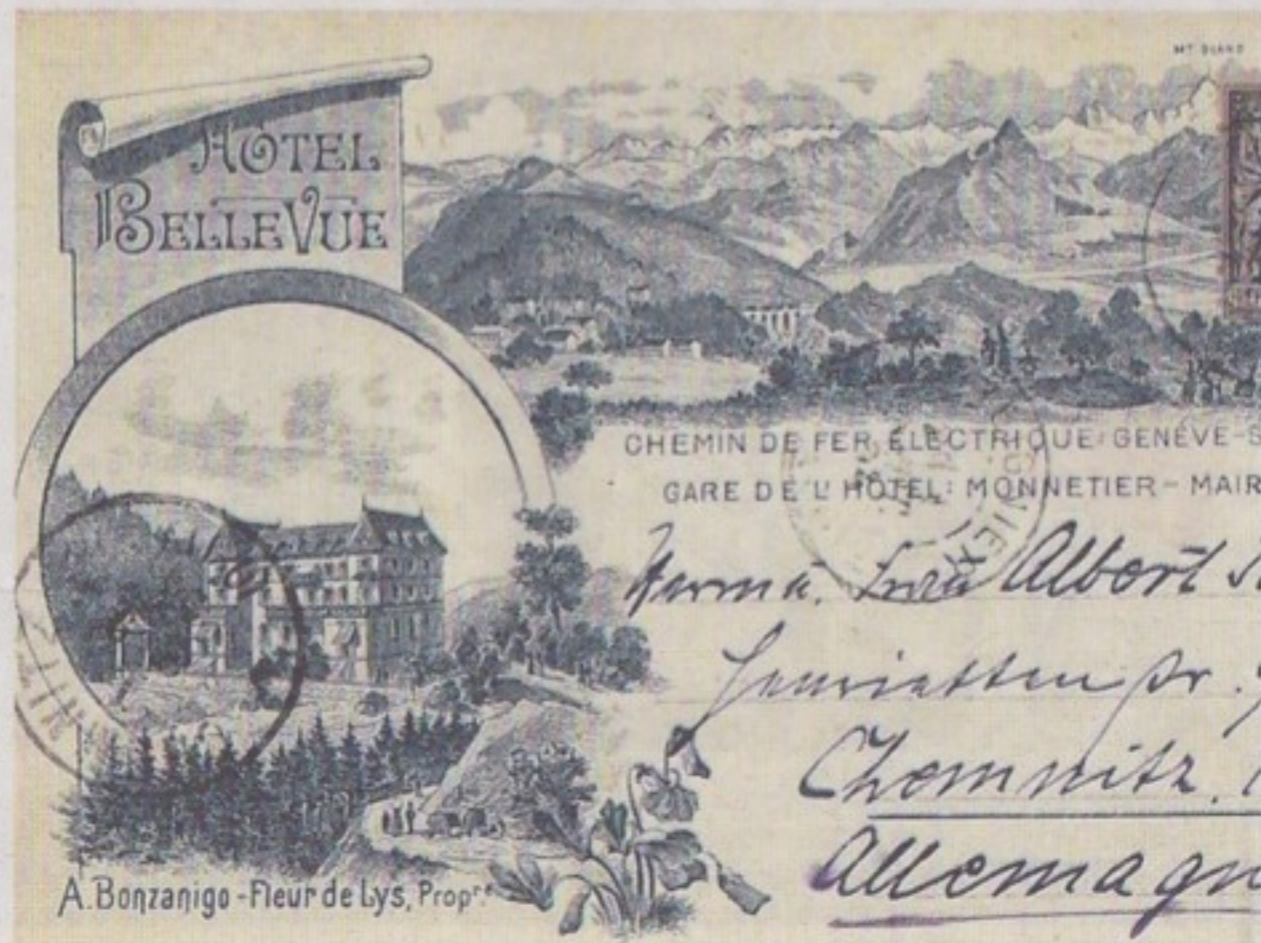 MT BLANC
HÔTEL
BELLEVUE
CHEMIN DE FER ÉLECTRIQUE GENÈVE-S
GARE DE L'HÔTEL: MONNETIER-MAIR
Albert
Chemnitz.
Allemagn
A. Bonzanigo-Fleur de Lys, Propre